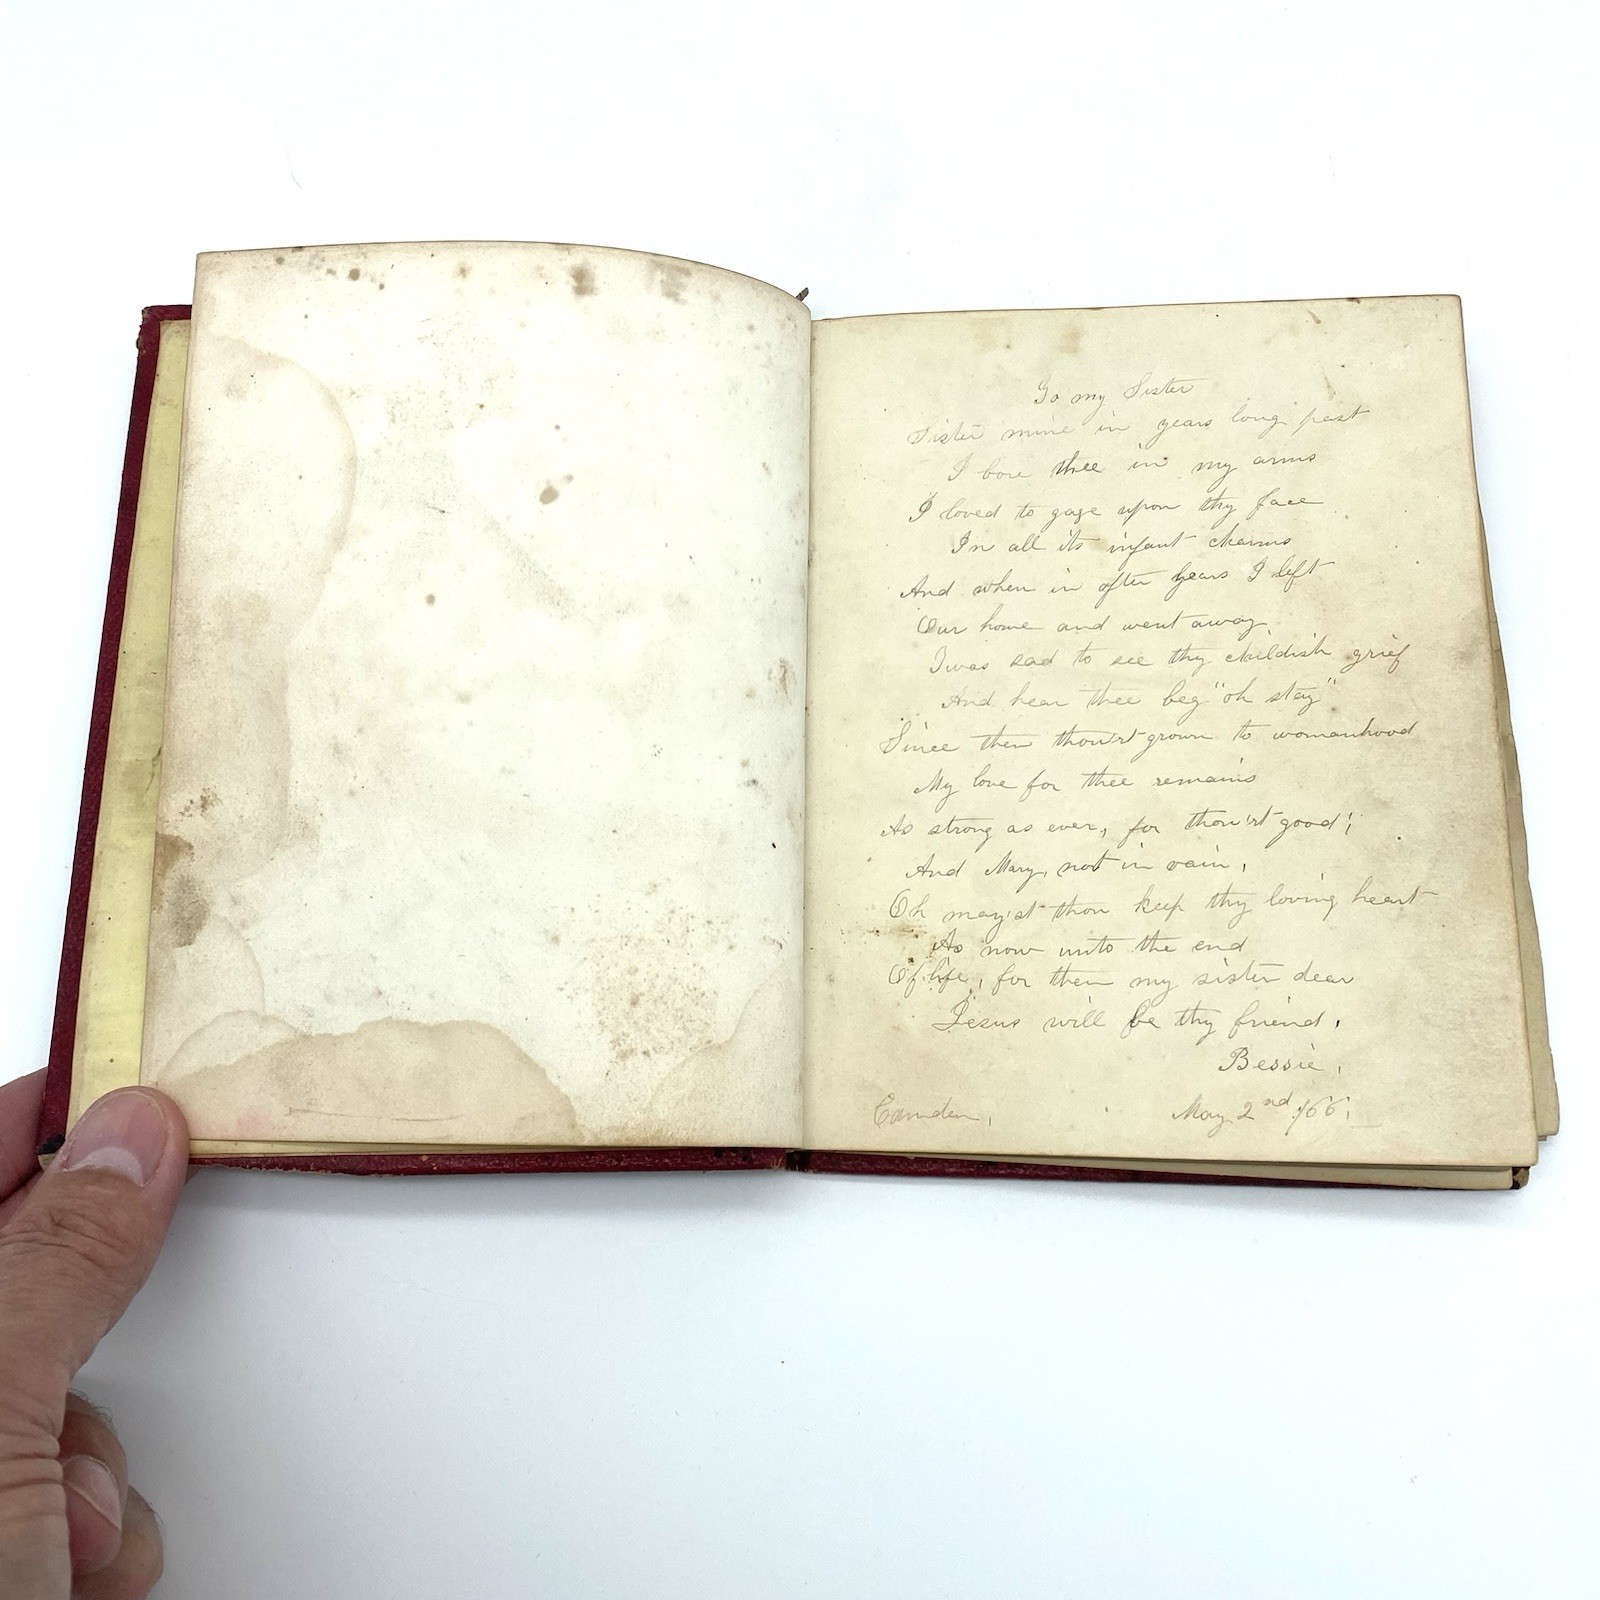 To my Sister
Sister mine in years long past
I bore thee in my arms
I loved to gaze upon thy face
In all its infant charms
And when in after years I left
Our home and went away
I was sad to see thy childish grief
And hear thee beg "oh stay"
Since then thou'rt grown to womanhood
My love for thee remains
As strong as ever, for thou'rt good;
And Mary, not in vain,
Oh may'st thou keep thy loving heart
As now unto the end
Of life, for then my sister dear
Jesus will be thy friend.
Bessie.
Camden, May 2nd /66.